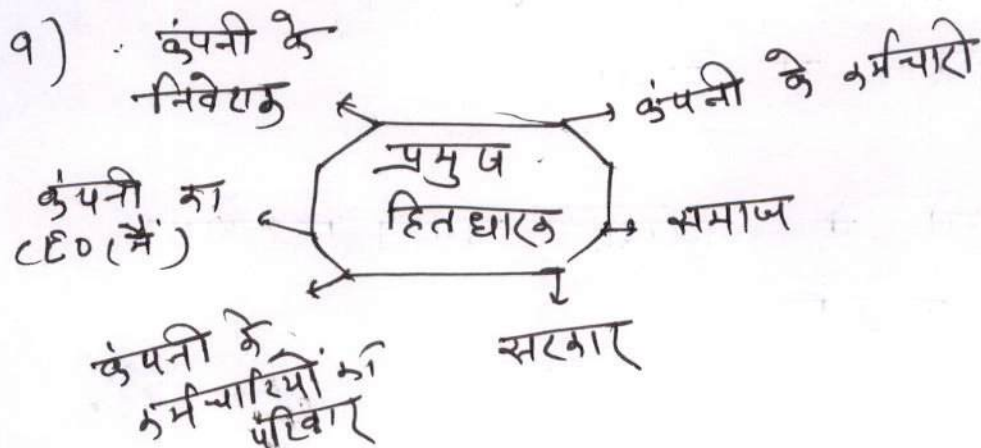 9) कंपनी के
निवेशक
कंपनी के कर्मचारी
प्रमुख
हितधारक
कंपनी का
CEO (मैं)
समाज
कंपनी के
कर्मचारियों का
परिवार
सरकार